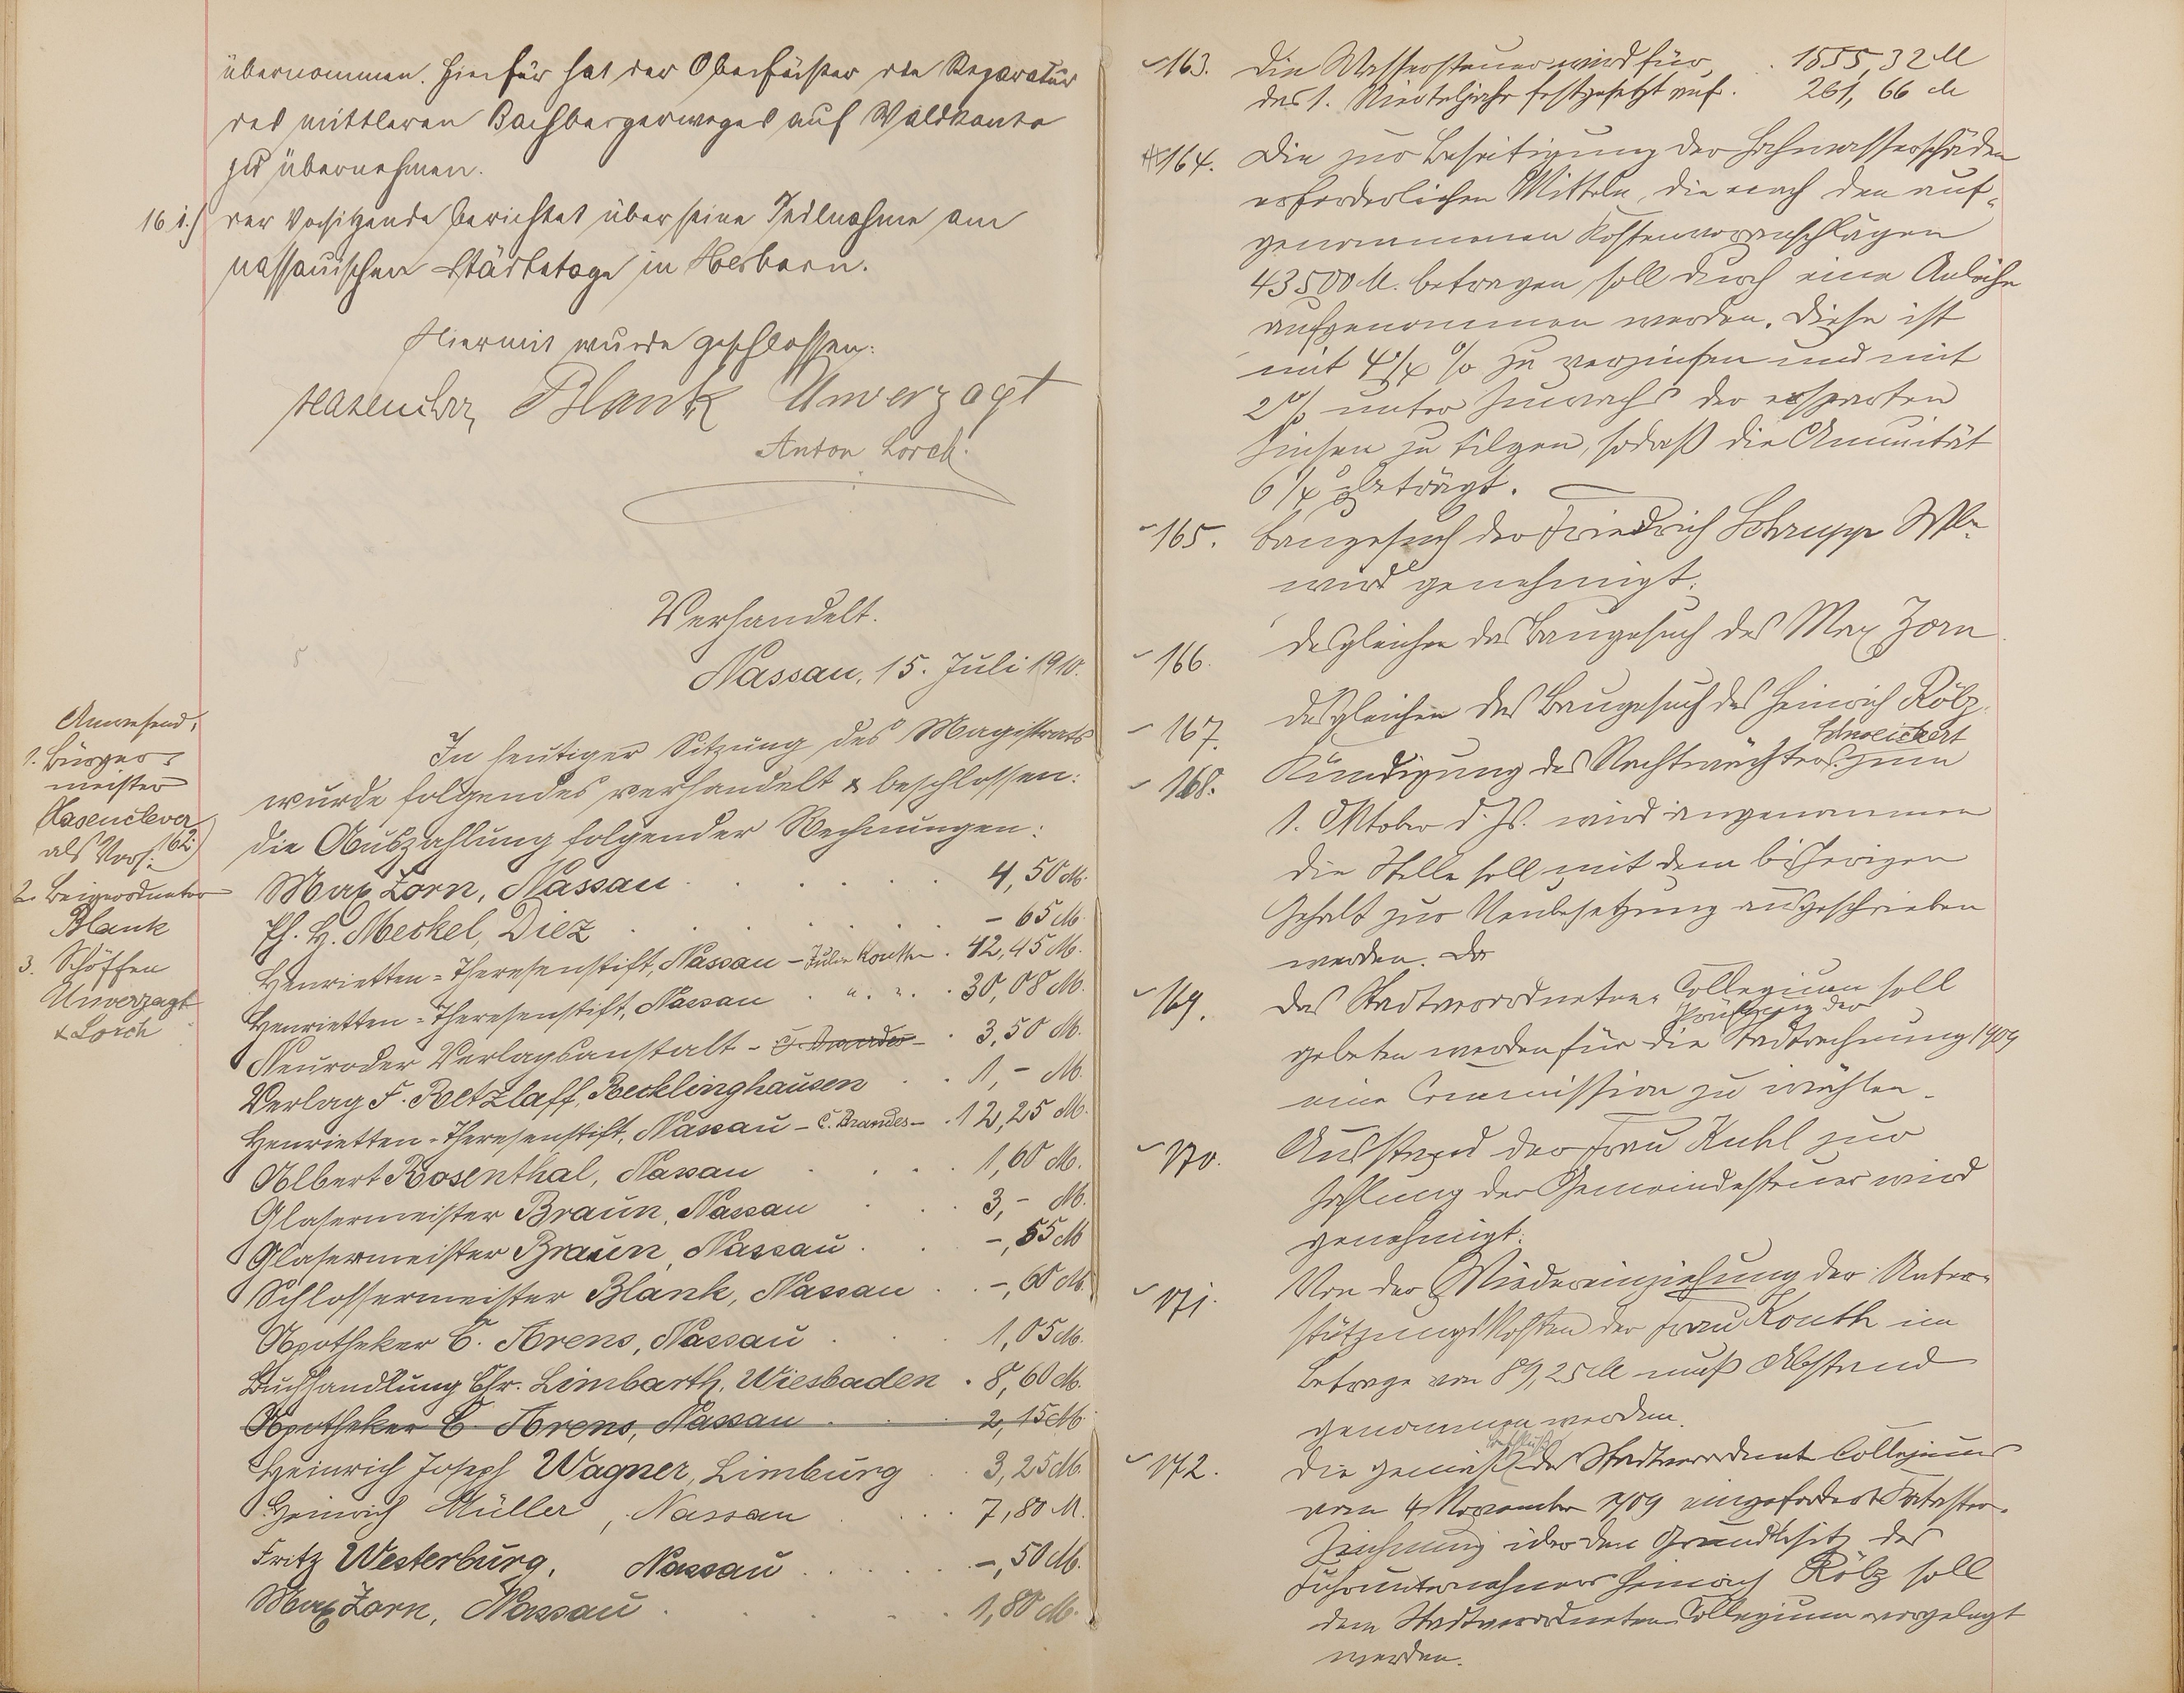 übernommen. Hierfür hat der Oberförster die Reparatur
des mittleren Bachbergerweges auf Waldkonto
zu übernehmen.
161.) der Vorsitzende berichtet über seine Teilnahme am
nassauischen Städtetage in Herborn.
Hiermit wurde geschlossen:
Hasenclever Blank Unverzagt
Anton Lorch.
Verhandelt.
Nassau, 15. Juli 1910.
Anwesend:
1. Bürger-
meister
Hasenclever
als Vors:
2. Beigeordneter
Blank
3. Schöffen
Unverzagt
& Lorch
In heutiger Sitzung des Magistrats
wurde folgendes verhandelt & beschlossen:
162.) die Auszahlung folgender Rechnungen:
Max Zorn, Nassau 4,50 M.
Ph. H. Merkel, Diez - 65 M.
Henrietten-Theresenstift, Nassau - Julie Kouth - 42,45 M.
Henrietten-Theresenstift, Nassau " " 30,08 M.
Neuroder Verlagsanstalt - C. Brandes - 3,50 M.
Verlag F. Retzlaff, Recklinghausen 1,- M.
Henrietten-Theresenstift, Nassau - C. Brandes - 12,25 M.
Albert Rosenthal, Nassau 1,60 M.
Glasermeister Braun, Nassau 3,- M.
Glasermeister Braun, Nassau -,55 M
Schlossermeister Blank, Nassau -,60 M.
Apotheker C. Arens, Nassau 1,05 M.
Buchhandlung Chr. Limbarth, Wiesbaden 8,60 M.
Apotheker C. Arens, Nassau 2,15 M.
Heinrich Joseph Wagner, Limburg 3,25 M.
Heinrich Müller, Nassau 7,80 M.
Fritz Westerburg, Nassau -,50 M.
Max Zorn, Nassau 1,80 M.
163. Die Wassersteuer wird für 1555,32 M
das 1. Vierteljahr festgesetzt auf. 261,66 M
164. Die zur Beseitigung der Hochwasserschäden
erforderlichen Mitteln, die nach den auf-
genommenen Kostenvoranschlägen
43500 M. betragen soll durch eine Anleihe
aufgenommen werden. Diese ist
mit 4 1/4 % zu verzinsen und mit
2 % unter Zuwachs der ersparten
Zinsen zu tilgen, sodaß die Annuität
6 1/4 % beträgt.
165. Baugesuch der Friedrich Schrupp Wwe.
wird genehmigt.
166. desgleichen das Baugesuch des Max Zorn
167. desgleichen das Baugesuch des Heinrich Rölz
168. Kündigung des Nachtwächters Schweickert zum
1. Oktober d. Js. wird angenommen
die Stelle soll mit dem bisherigen
Gehalt zur Neubesetzung ausgeschrieben
werden. Da
169. Das Stadtverordneten-Collegium soll
gebeten werden für die Prüfung der Stadtrechnung 1909
eine Commission zu wählen.
170. Ausstand der Frau Kuhl zur
Zahlung der Gemeindesteuer wird
genehmigt.
171. Von der Wiedereinziehung der Unter-
stützungskosten der Frau Kouth im
Betrage von 89,25 M muß Abstand
genommen werden.
172. Die gemäß Beschluß des Stadtverordneten Collegiums
vom 4 November 1909 eingefordert Kataster-
Zeichnung über den Grundbesitz des
Fuhrunternehmers Heinrich Rölz soll
dem Stadtverordneten-Collegium vorgelegt
werden.